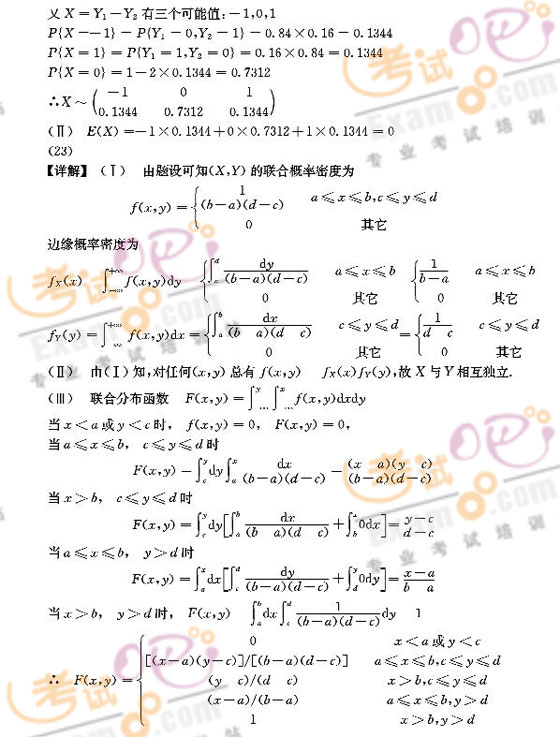 又 X = Y₁ − Y₂ 有三个可能值: −1,0,1
P{X = −1} = P{Y₁ = 0,Y₂ = 1} = 0.84 × 0.16 = 0.1344
P{X = 1} = P{Y₁ = 1,Y₂ = 0} = 0.16 × 0.84 = 0.1344
P{X = 0} = 1 − 2 × 0.1344 = 0.7312
∴ X ~ ( −1 0 1
0.1344 0.7312 0.1344 )
(Ⅱ) E(X) = −1 × 0.1344 + 0 × 0.7312 + 1 × 0.1344 = 0
(23)
【详解】 (Ⅰ) 由题设可知(X,Y) 的联合概率密度为
f(x,y) = { 1/(b−a)(d−c) a ≤ x ≤ b,c ≤ y ≤ d
0 其它
边缘概率密度为
f_X(x) ∫_{−∞}^{+∞} f(x,y)dy { ∫_c^d dy/(b−a)(d−c) a ≤ x ≤ b { 1/b−a a ≤ x ≤ b
0 其它 0 其它
f_Y(y) = ∫_{−∞}^{+∞} f(x,y)dx = { ∫_a^b dx/(b a)(d c) c ≤ y ≤ d = { 1/d c c ≤ y ≤ d
0 其它 0 其它
(Ⅱ) 由(Ⅰ)知,对任何(x,y) 总有 f(x,y) f_X(x)f_Y(y),故 X 与 Y 相互独立.
(Ⅲ) 联合分布函数 F(x,y) = ∫_{−∞}^y ∫_{−∞}^x f(x,y)dxdy
当 x < a 或 y < c 时, f(x,y) = 0, F(x,y) = 0,
当 a ≤ x ≤ b, c ≤ y ≤ d 时
F(x,y) = ∫_c^y dy ∫_a^x dx/(b−a)(d−c) = (x a)(y c)/(b−a)(d−c)
当 x > b, c ≤ y ≤ d 时
F(x,y) = ∫_c^y dy[∫_a^b dx/(b a)(d c) + ∫_b^x 0dx] = y−c/d−c
当 a ≤ x ≤ b, y > d 时
F(x,y) = ∫_a^x dx[∫_c^d dy/(b−a)(d−c) + ∫_d^y 0dy] = x−a/b a
当 x > b, y > d 时, F(x,y) ∫_a^b dx ∫_c^d 1/(b−a)(d−c) dy 1
∴ F(x,y) = { 0 x < a 或 y < c
[(x−a)(y−c)]/[(b−a)(d−c)] a ≤ x ≤ b,c ≤ y ≤ d
(y c)/(d c) x > b,c ≤ y ≤ d
(x−a)/(b−a) a ≤ x ≤ b,y > d
1 x > b,y > d
考试吧
Exam8.com
专业考试培训